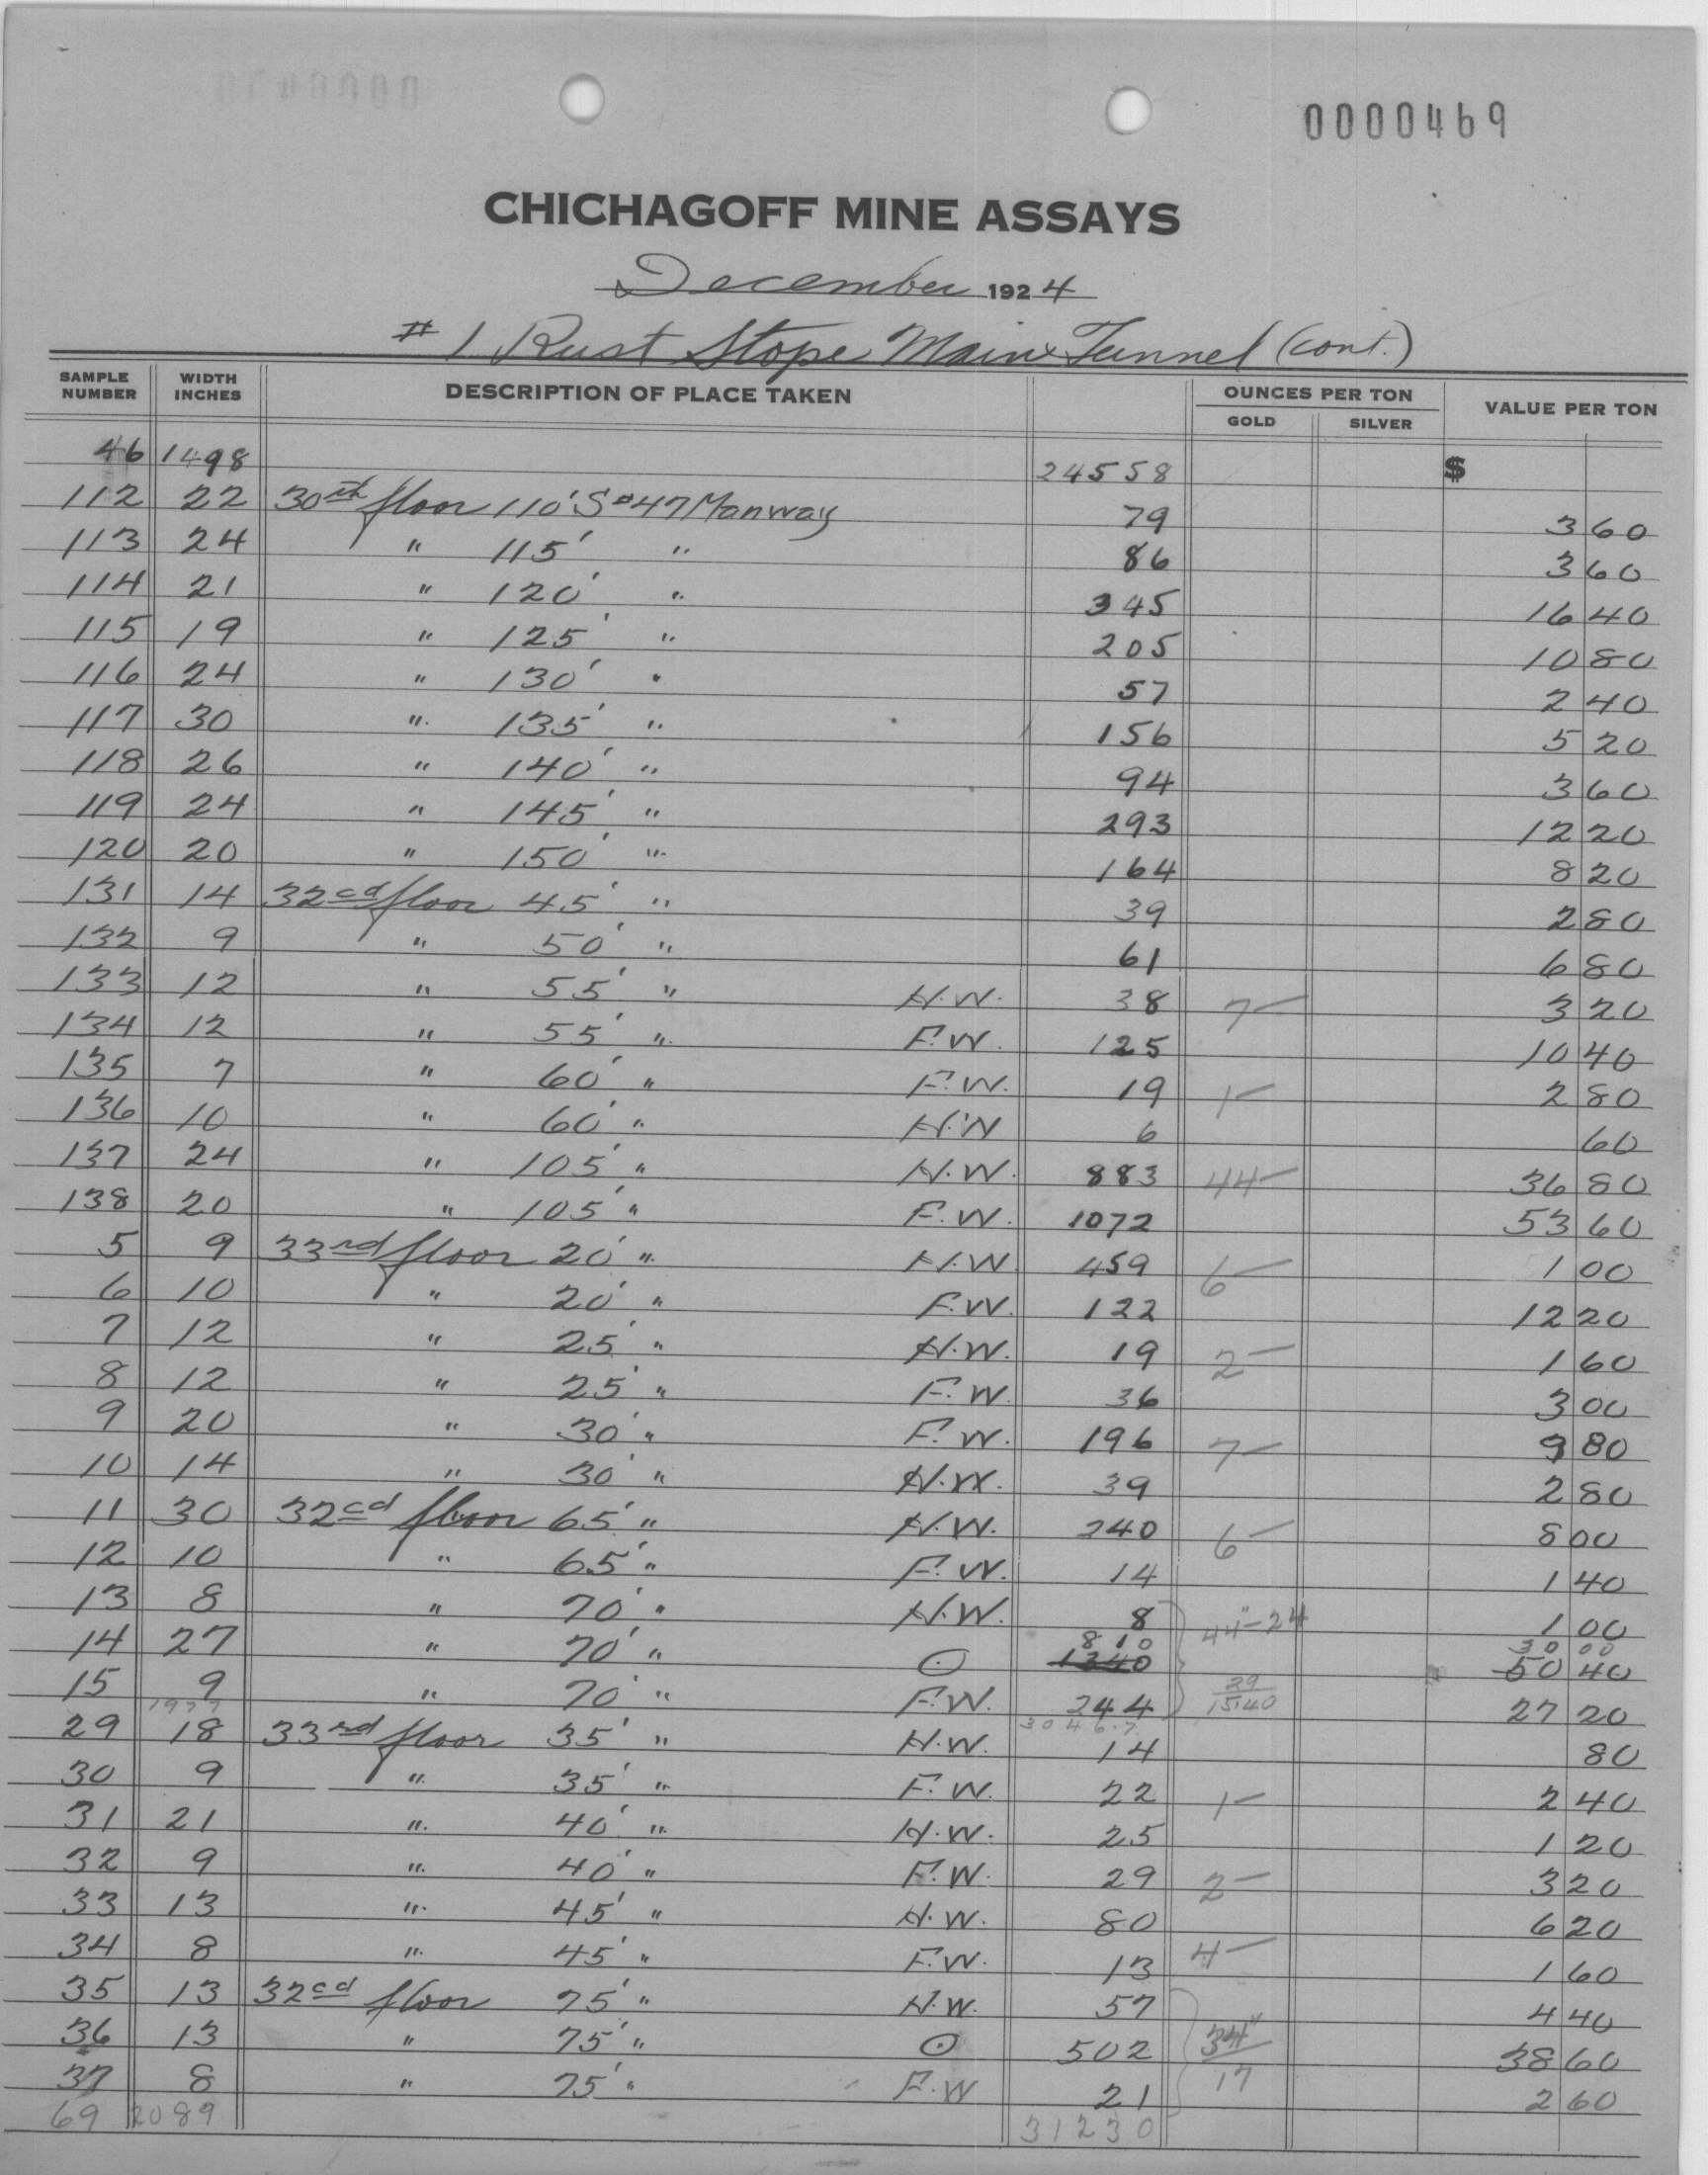 0000469
CHICHAGOFF MINE ASSAYS
December 1924
# 1 Rust Stope Main Tunnel (cont.)
SAMPLE NUMBER WIDTH INCHES DESCRIPTION OF PLACE TAKEN OUNCES PER TON GOLD SILVER VALUE PER TON
46 1498 24558 $
112 22 30th floor 110' S #47 Manway 79 3 60
113 24 " 115' " 86 3 60
114 21 " 120' " 345 16 40
115 19 " 125' " 205 10 80
116 24 " 130' " 57 2 40
117 30 " 135' " 156 5 20
118 26 " 140' " 94 3 60
119 24 " 145' " 293 12 20
120 20 " 150' " 164 8 20
131 14 32cd floor 45' " 39 2 80
132 9 " 50' " 61 6 80
133 12 " 55' " H.W. 38 7- 3 20
134 12 " 55' " F.W. 125 10 40
135 7 " 60' " F.W. 19 1- 2 80
136 10 " 60' " H.W 6 60
137 24 " 105' " H.W. 883 44- 36 80
138 20 " 105' " F.W. 1072 53 60
5 9 33rd floor 20' " H.W. 459 6- 1 00
6 10 " 20' " F.W. 122 12 20
7 12 " 25' " H.W. 19 2- 1 60
8 12 " 25' " F.W. 36 3 00
9 20 " 30' " F.W. 196 7- 9 80
10 14 " 30' " H.W. 39 2 80
11 30 32cd floor 65' " H.W. 240 6- 8 00
12 10 " 65' " F.W. 14 1 40
13 8 " 70' " H.W. 8 44"-24 1 00
810 30 00
14 27 " 70' " ⊙ 1340 50 40
15 9 " 70' " F.W. 244 29 1540 27 20
1977 3046.7
29 18 33rd floor 35' " H.W. 14 80
30 9 " 35' " F.W. 22 1- 2 40
31 21 " 40' " H.W. 25 1 20
32 9 " 40' " F.W. 29 2- 3 20
33 13 " 45' " H.W. 80 6 20
34 8 " 45' " F.W. 13 4- 1 60
35 13 32cd floor 75' " H.W. 57 4 40
36 13 " 75' " ⊙ 502 34" 38 60
37 8 " 75' " F.W 21 17 2 60
69 2089 31230